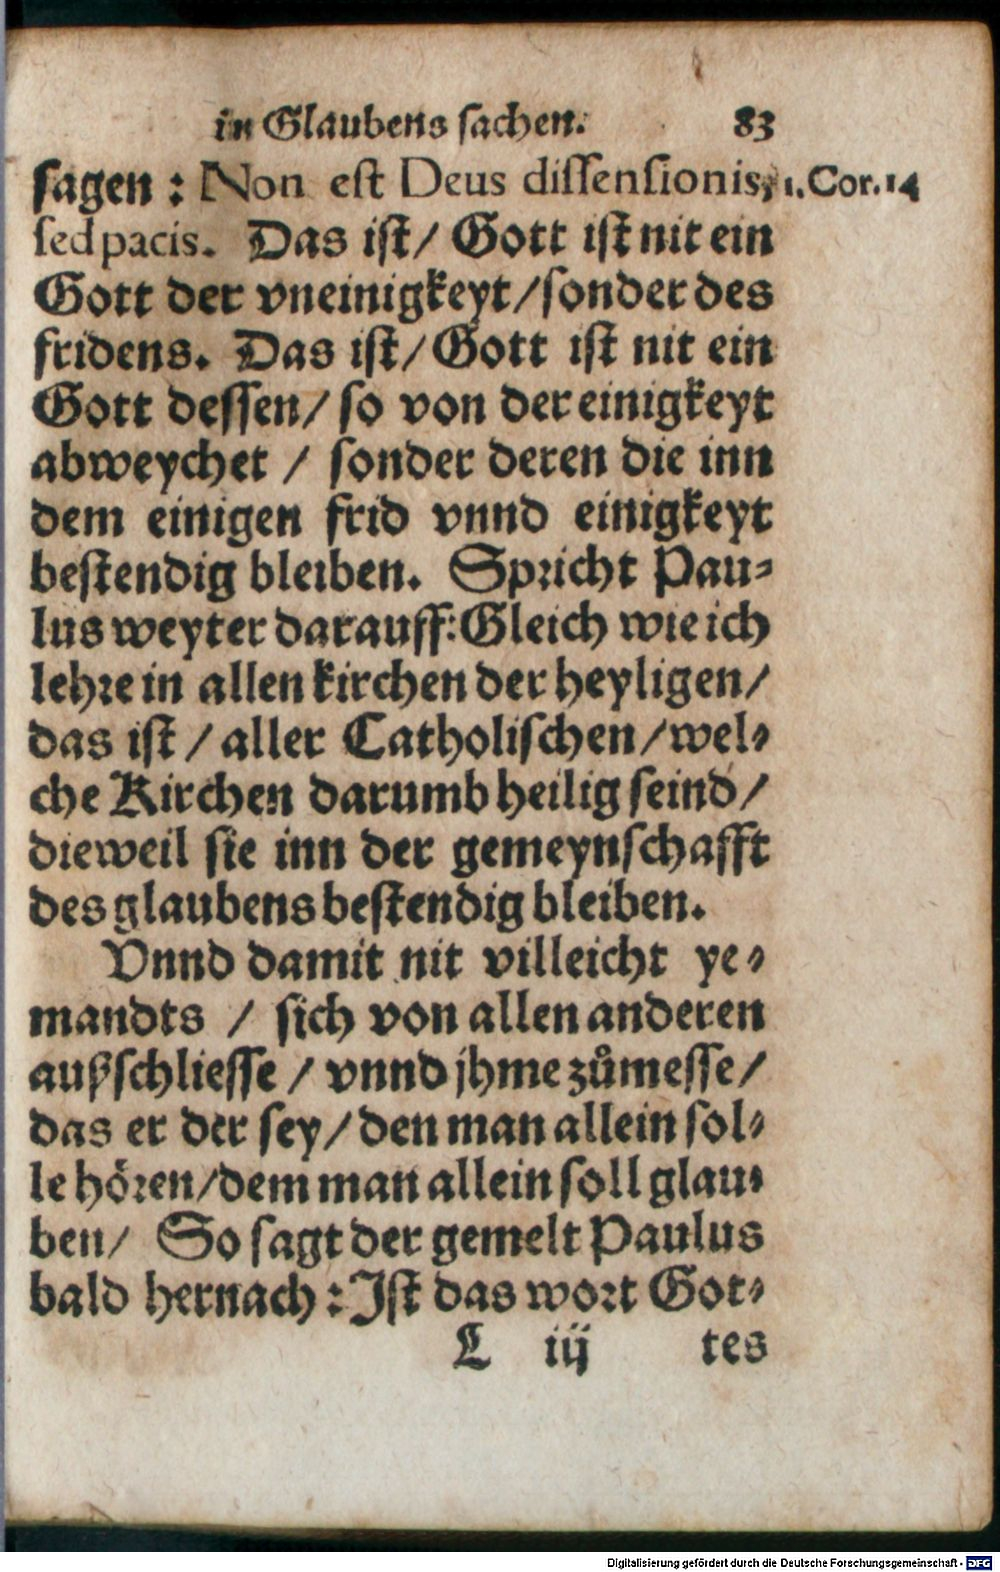 in Glaubens sachen. 83
sagen : Non est Deus dissensionis, 1. Cor. 14
sed pacis. Das ist / Gott ist nit ein
Gott der vneinigkeyt / sonder des
fridens. Das ist / Gott ist nit ein
Gott dessen / so von der einigkeyt
abweychet / sonder deren die inn
dem einigen frid vnnd einigkeyt
bestendig bleiben. Spricht Pau-
lus weyter darauff: Gleich wie ich
lehre in allen kirchen der heyligen /
das ist / aller Catholischen / wel-
che Kirchen darumb heilig seind /
dieweil sie inn der gemeynschafft
des glaubens bestendig bleiben.
Vnnd damit nit villeicht ye-
mandts / sich von allen anderen
außschliesse / vnnd jhme zůmesse /
das er der sey / den man allein sol-
le hören / dem man allein soll glau-
ben / So sagt der gemelt Paulus
bald hernach : Ist das wort Got-
L iij tes
Digitalisierung gefördert durch die Deutsche Forschungsgemeinschaft - DFG